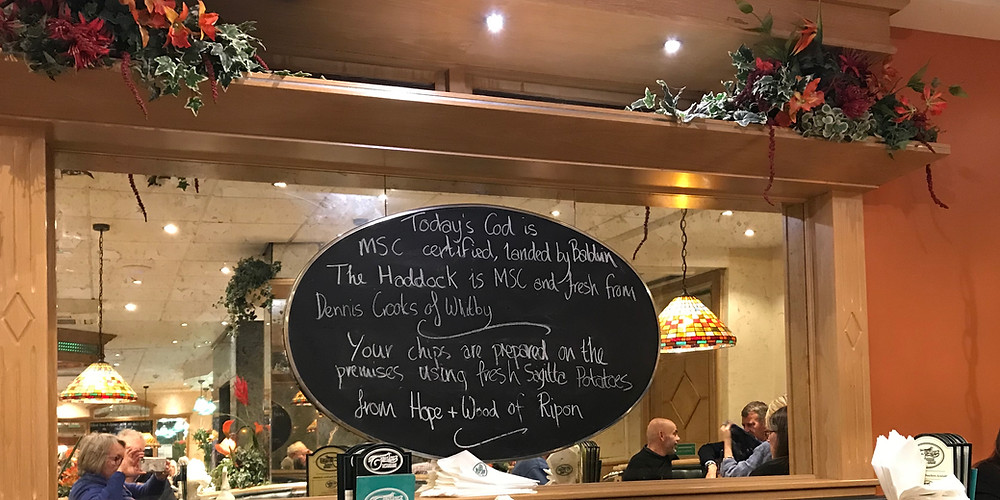 Today's Cod is
MSC certified, landed by Baldvin
The Haddock is MSC and fresh from
Dennis Crooks of Whitby
Your chips are prepared on the
premises using fresh Sagitta Potatoes
from Hope + Wood of Ripon